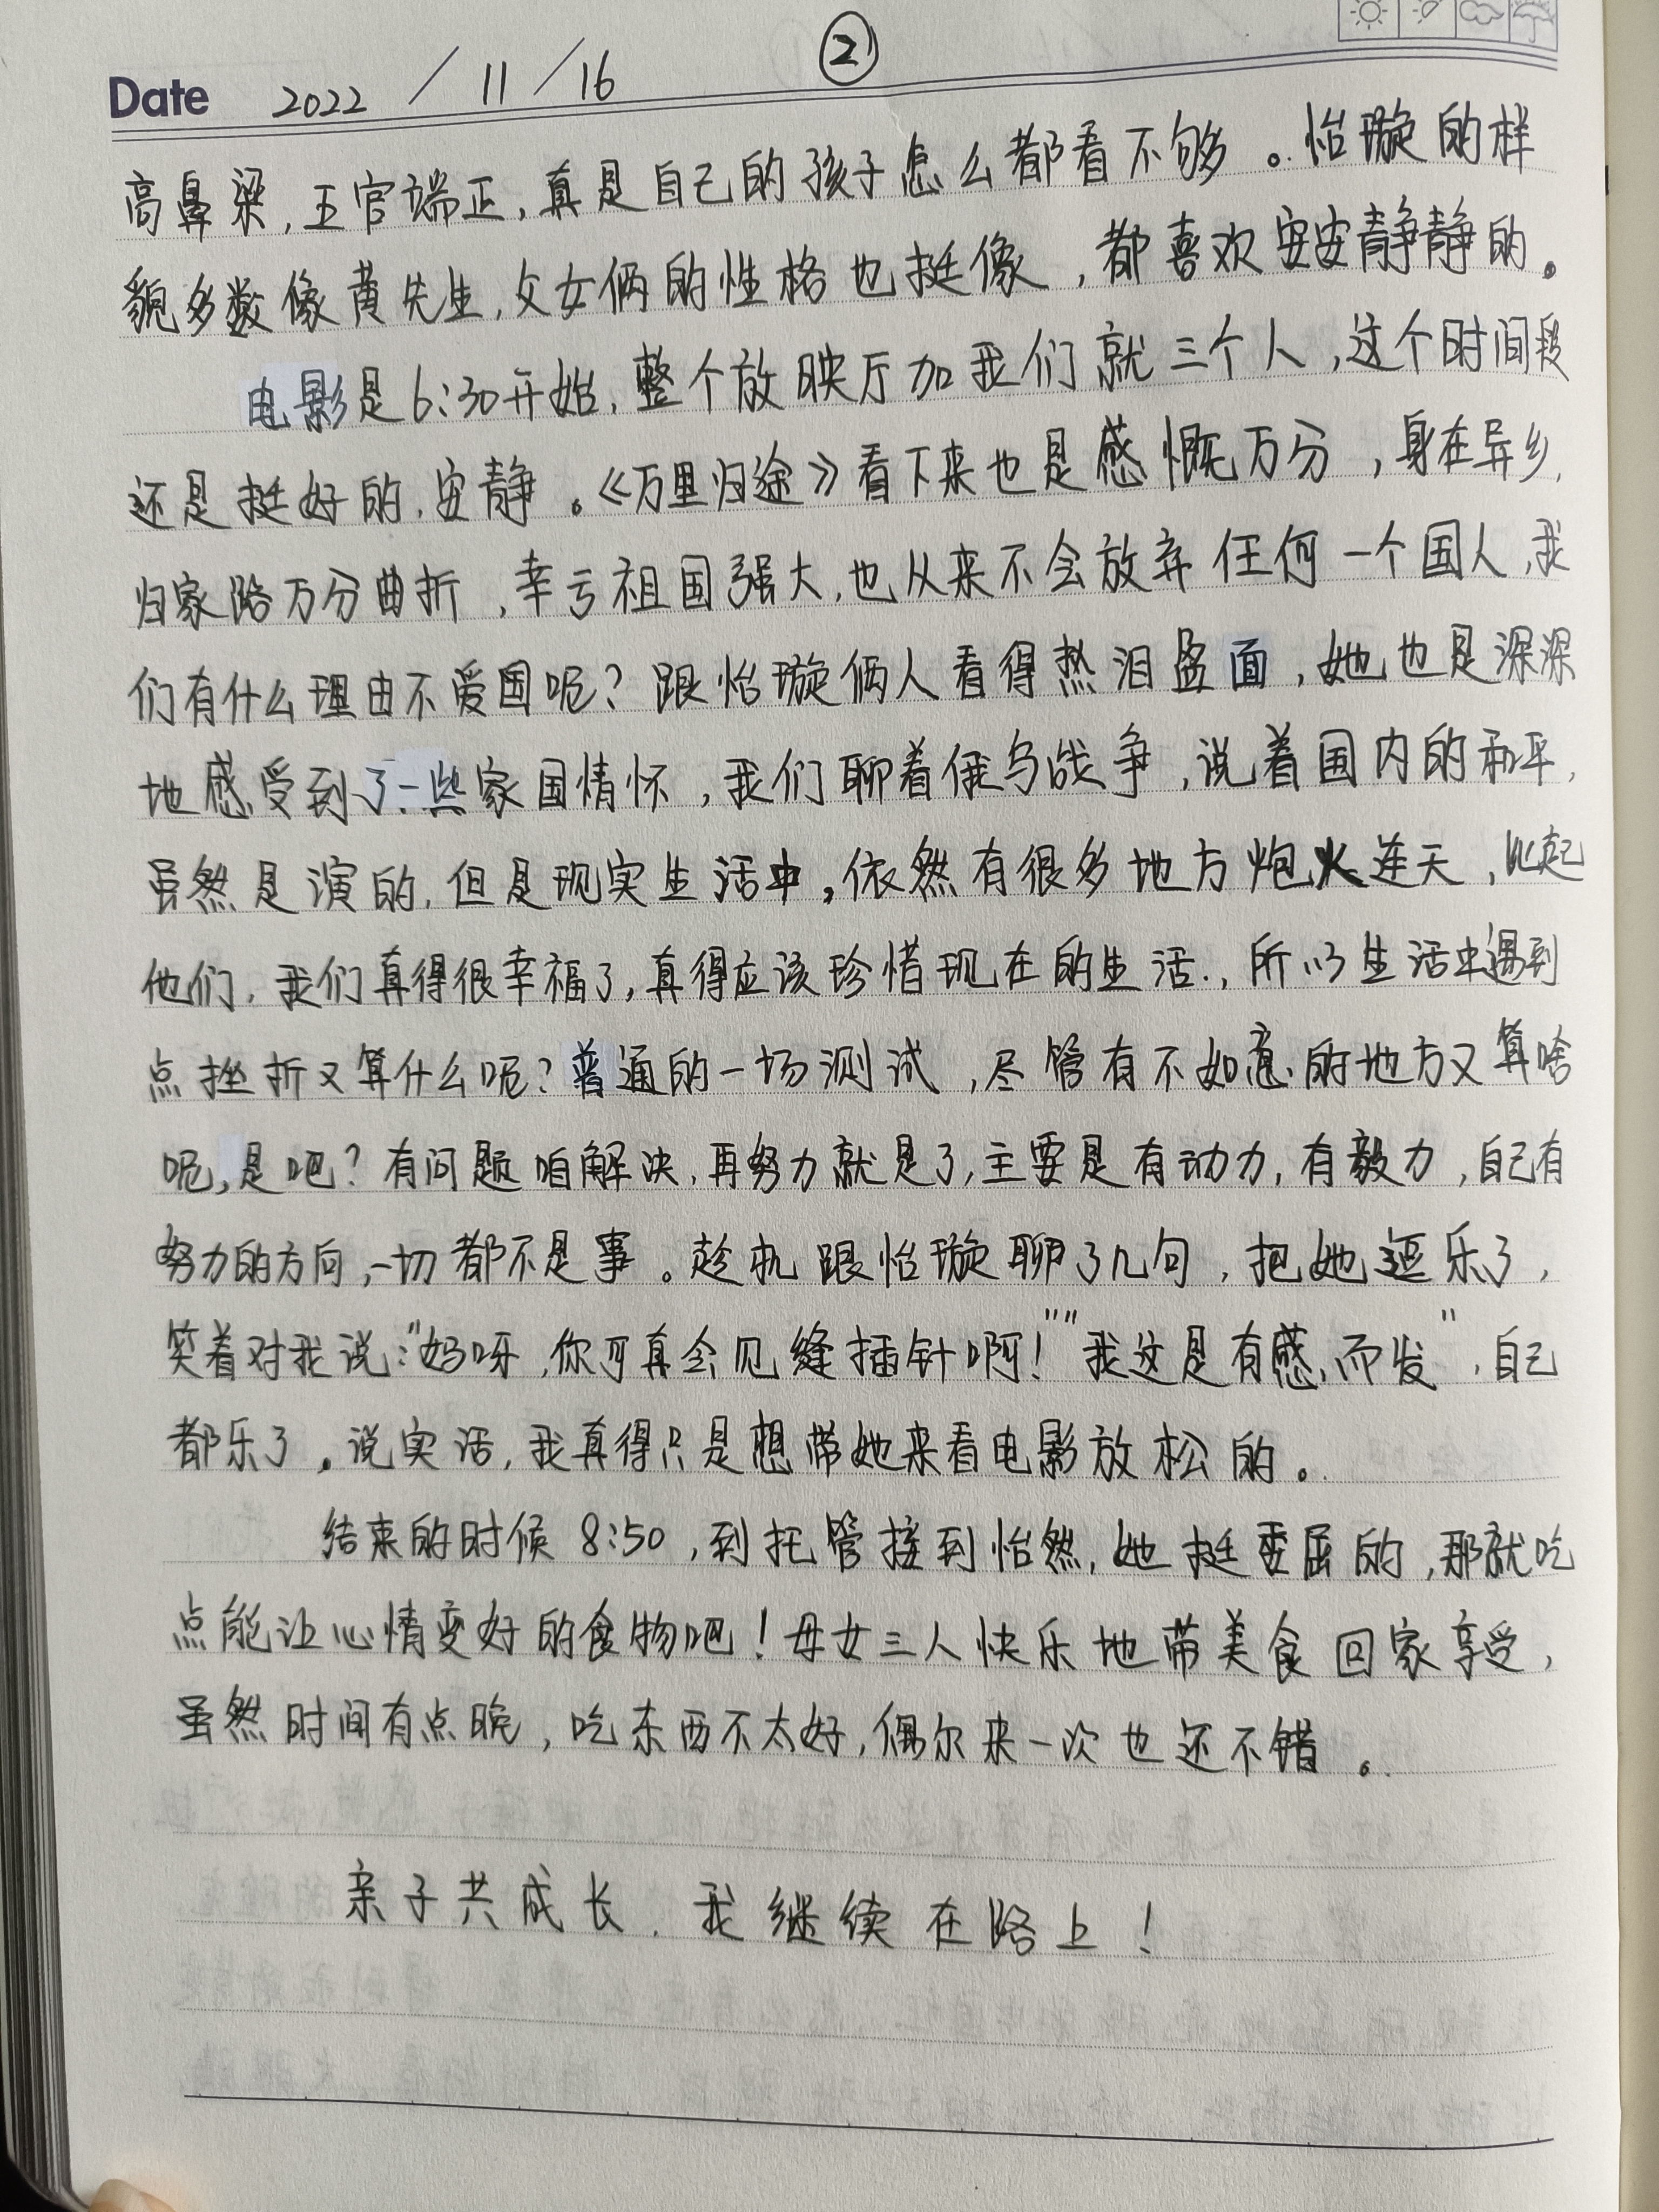 ②
Date 2022 / 11 / 16
高鼻梁,五官端正,真是自己的孩子怎么都看不够。怡璇的样
貌多数像黄先生,父女俩的性格也挺像,都喜欢安安静静的。
电影是6:30开始,整个放映厅加我们就三个人,这个时间段
还是挺好的,安静。《万里归途》看下来也是感慨万分,身在异乡,
归家路万分曲折,幸亏祖国强大,也从来不会放弃任何一个国人,我
们有什么理由不爱国呢?跟怡璇俩人看得热泪盈面,她也是深深
地感受到了一些家国情怀,我们聊着俄乌战争,说着国内的和平,
虽然是演的,但是现实生活中,依然有很多地方炮火连天,比起
他们,我们真得很幸福了,真得应该珍惜现在的生活.,所以生活中遇到
点挫折又算什么呢?普通的一场测试,尽管有不如意的地方又算啥
呢,是吧?有问题咱解决,再努力就是了,主要是有动力,有毅力,自己有
努力的方向,一切都不是事。趁机跟怡璇聊了几句,把她逗乐了,
笑着对我说:"妈呀,你可真会见缝插针啊!""我这是有感而发",自己
都乐了。说实话,我真得只是想带她来看电影放松的。
结束的时候8:50,到托管接到怡然,她挺委屈的,那就吃
点能让心情变好的食物吧!母女三人快乐地带美食回家享受,
虽然时间有点晚,吃东西不太好,偶尔来一次也还不错。
亲子共成长,我继续在路上!